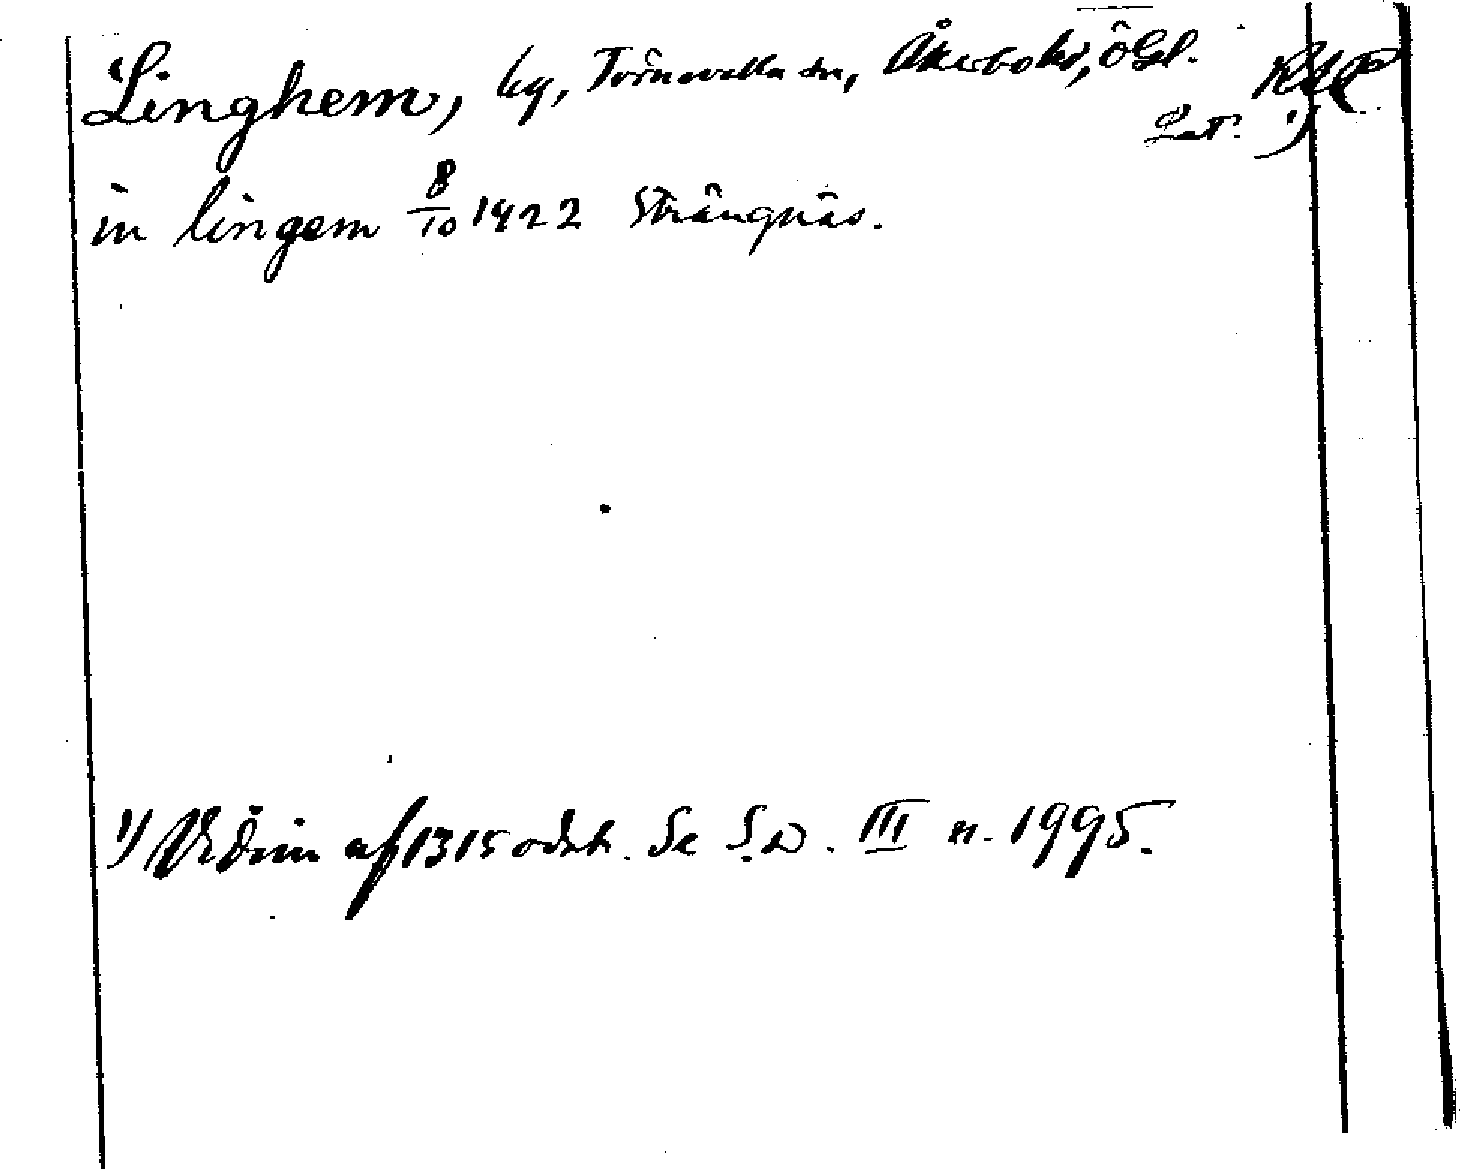 Linghem, by, Törnevalla sn, Åkerbo hd, ÖGl. RAP
Lat. 1)
in lingem 8/10 1422 Strängnäs.
1) Vidim af 1315 odat. Se S.D. III n. 1995.